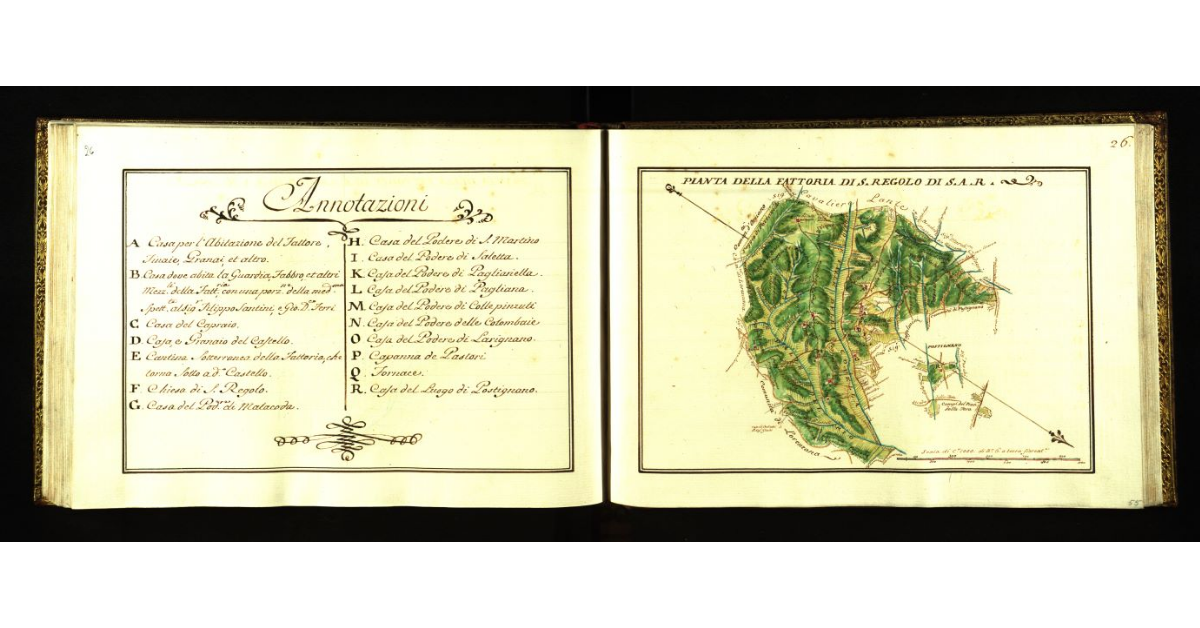 26
Annotazioni
A Casa per l'Abitazione del Fattore,
Tinaie, Granai, et altro.
B Casa dove abita la Guardia, Fabbro, et altri
Mezz.ri della Fatt.ria con una porz.ne della med.ma
spett.e al Sig.r Filippo Santini, e Gio. B.a Ferri
C Casa del Capraio.
D Casa, e Granaio del Castello.
E Cantina Sotterranea della Fattoria, che
torna sotto a d.o Castello.
F Chiesa di S. Regolo.
G Casa del Pod.re di Malacoda.
H Casa del Podere di S. Martino
I Casa del Podere di Saletta.
K Casa del Podere di Pagliariella.
L Casa del Podere di Pagliana.
M Casa del Podere di Colle pinzuti
N Casa del Podere delle Colombaie
O Casa del Podere di Larignano.
P Capanna de Pastori
Q Fornace.
R Casa del Luogo di Postignano.
26.
PIANTA DELLA FATTORIA DI S. REGOLO DI S. A. R.
Sig.
Cavalier Lante
POSTIGNANO
Comunità di Lorenzana
55